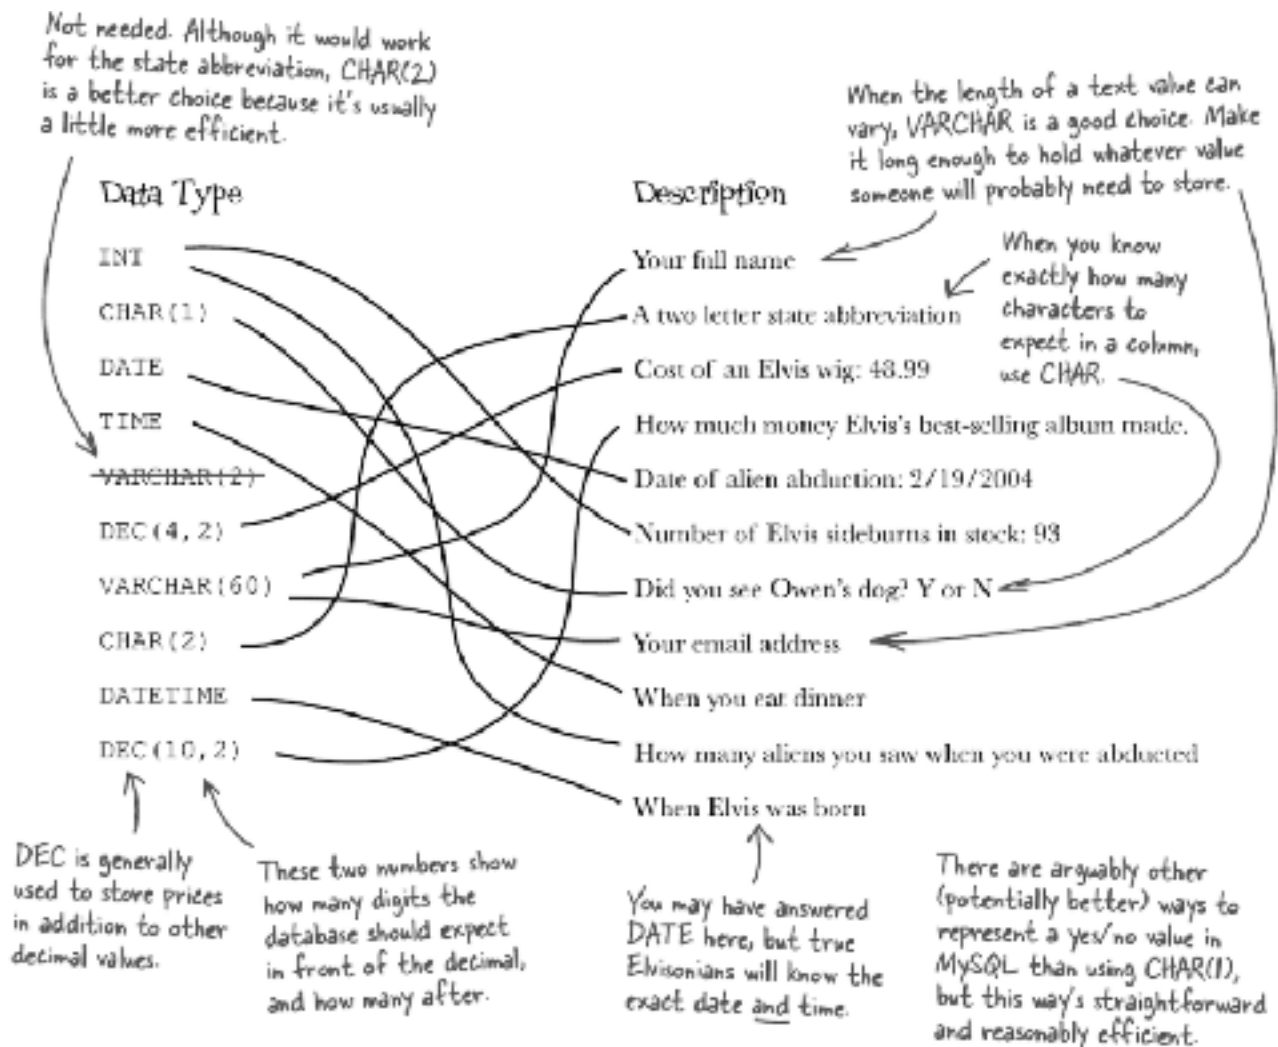 Not needed. Although it would work
for the state abbreviation, CHAR(2)
is a better choice because it's usually
a little more efficient.
When the length of a text value can
vary, VARCHAR is a good choice. Make
it long enough to hold whatever value
someone will probably need to store.
Data Type
Description
When you know
exactly how many
characters to
expect in a column,
use CHAR.
INT
CHAR(1)
DATE
TIME
VARCHAR(2)
DEC(4,2)
VARCHAR(60)
CHAR(2)
DATETIME
DEC(10,2)
Your full name
A two letter state abbreviation
Cost of an Elvis wig: 48.99
How much money Elvis's best-selling album made.
Date of alien abduction: 2/19/2004
Number of Elvis sideburns in stock: 93
Did you see Owen's dog? Y or N
Your email address
When you eat dinner
How many aliens you saw when you were abducted
When Elvis was born
DEC is generally
used to store prices
in addition to other
decimal values.
These two numbers show
how many digits the
database should expect
in front of the decimal,
and how many after.
You may have answered
DATE here, but true
Elvisonians will know the
exact date and time.
There are arguably other
(potentially better) ways to
represent a yes/no value in
MySQL than using CHAR(1),
but this way's straightforward
and reasonably efficient.